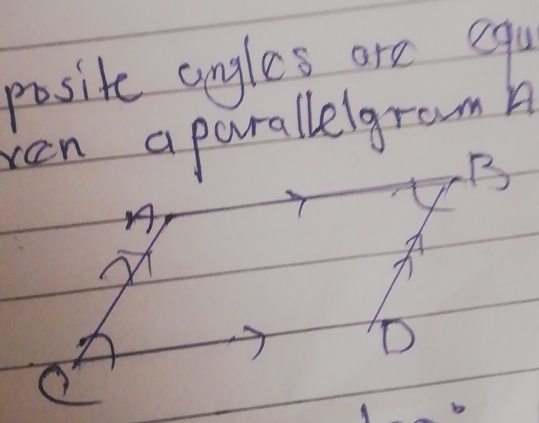 posite angles are equ
ven a parallelgram A
A
B
C
D